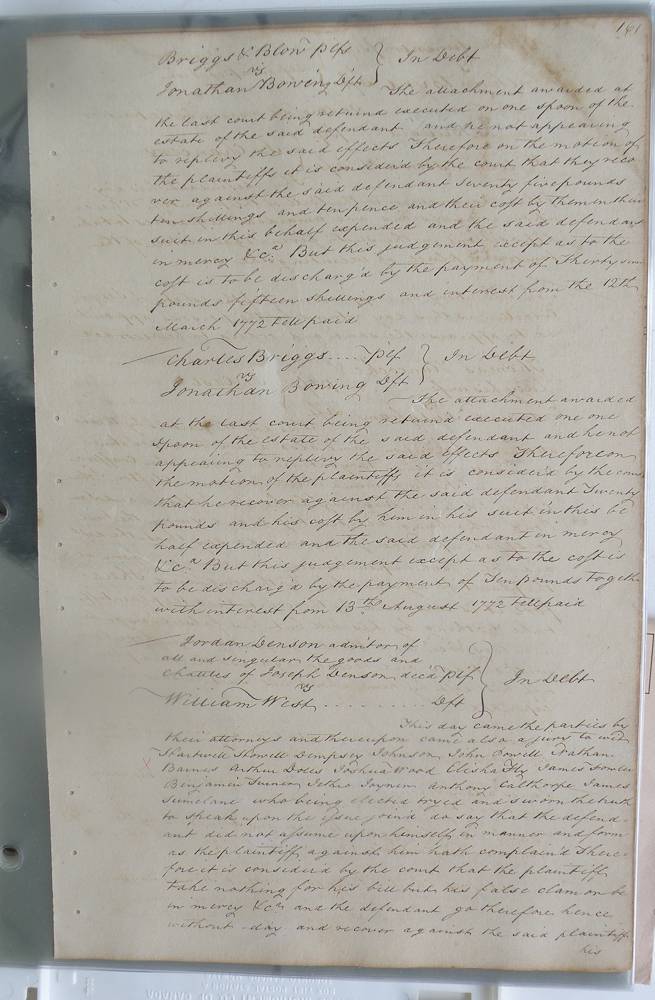 161
Briggs & Blow plfs } In Debt
vs
Jonathan Bowing Dft
The attachment awarded at
the last court being returnd executed on one spoon of the
estate of the said defendant and he not appearing
to replevy the said effects Therefore on the motion of
the plaintiffs it is considerd by the court that they reco
ver against the said defendant seventy five pounds
ten shillings and ten pence and their cost by them in their
suit in this behalf expended and the said defendant
in mercy &c.a But this judgement except as to the
cost is to be discharg'd by the payment of Thirty seven
pounds fifteen shillings and interest from the 12th
March 1772 till paid
Charles Briggs .... plf } In Debt
vs
Jonathan Bowing Dft
The attachment awarded
at the last court being returnd executed one one
spoon of the estate of the said defendant and he not
appearing to replevy the said effects Thereforeon
the motion of the plaintiffs it is considerd by the court
that he recover against the said defendant Twenty
pounds and his cost by him in his suit in this be
half expended and the said defendant in mercy
&c.a But this judgement except as to the cost is
to be discharg'd by the payment of Ten pounds together
with interest from 13th August 1772 till paid
Jordan Denson admitor of
all and singular the goods and
chattles of Joseph Denson decd plf } In Debt
vs
William West ......... Dft
This day came the parties by
their attorneys and thereupon came also a jury to wit
Hartwell Dempsey Johnson John Powell Nathan
Barnes Arthur Joshua Wood Elisha Fly James Fowler
Benjamin Turner Jethro Joyner Anthony Calthorpe James
who being elected tryed and sworn the truth
to speak upon the issue joind do say that the defend-
ant did not assume upon himself in manner and form
as the plaintiff against him hath complain'd There-
fore it is considerd by the court that the plaintiff
take nothing for his bill but his false clam on be
in mercy &c.a and the defendant go therefore hence
without day and recover against the said plaintiff
his